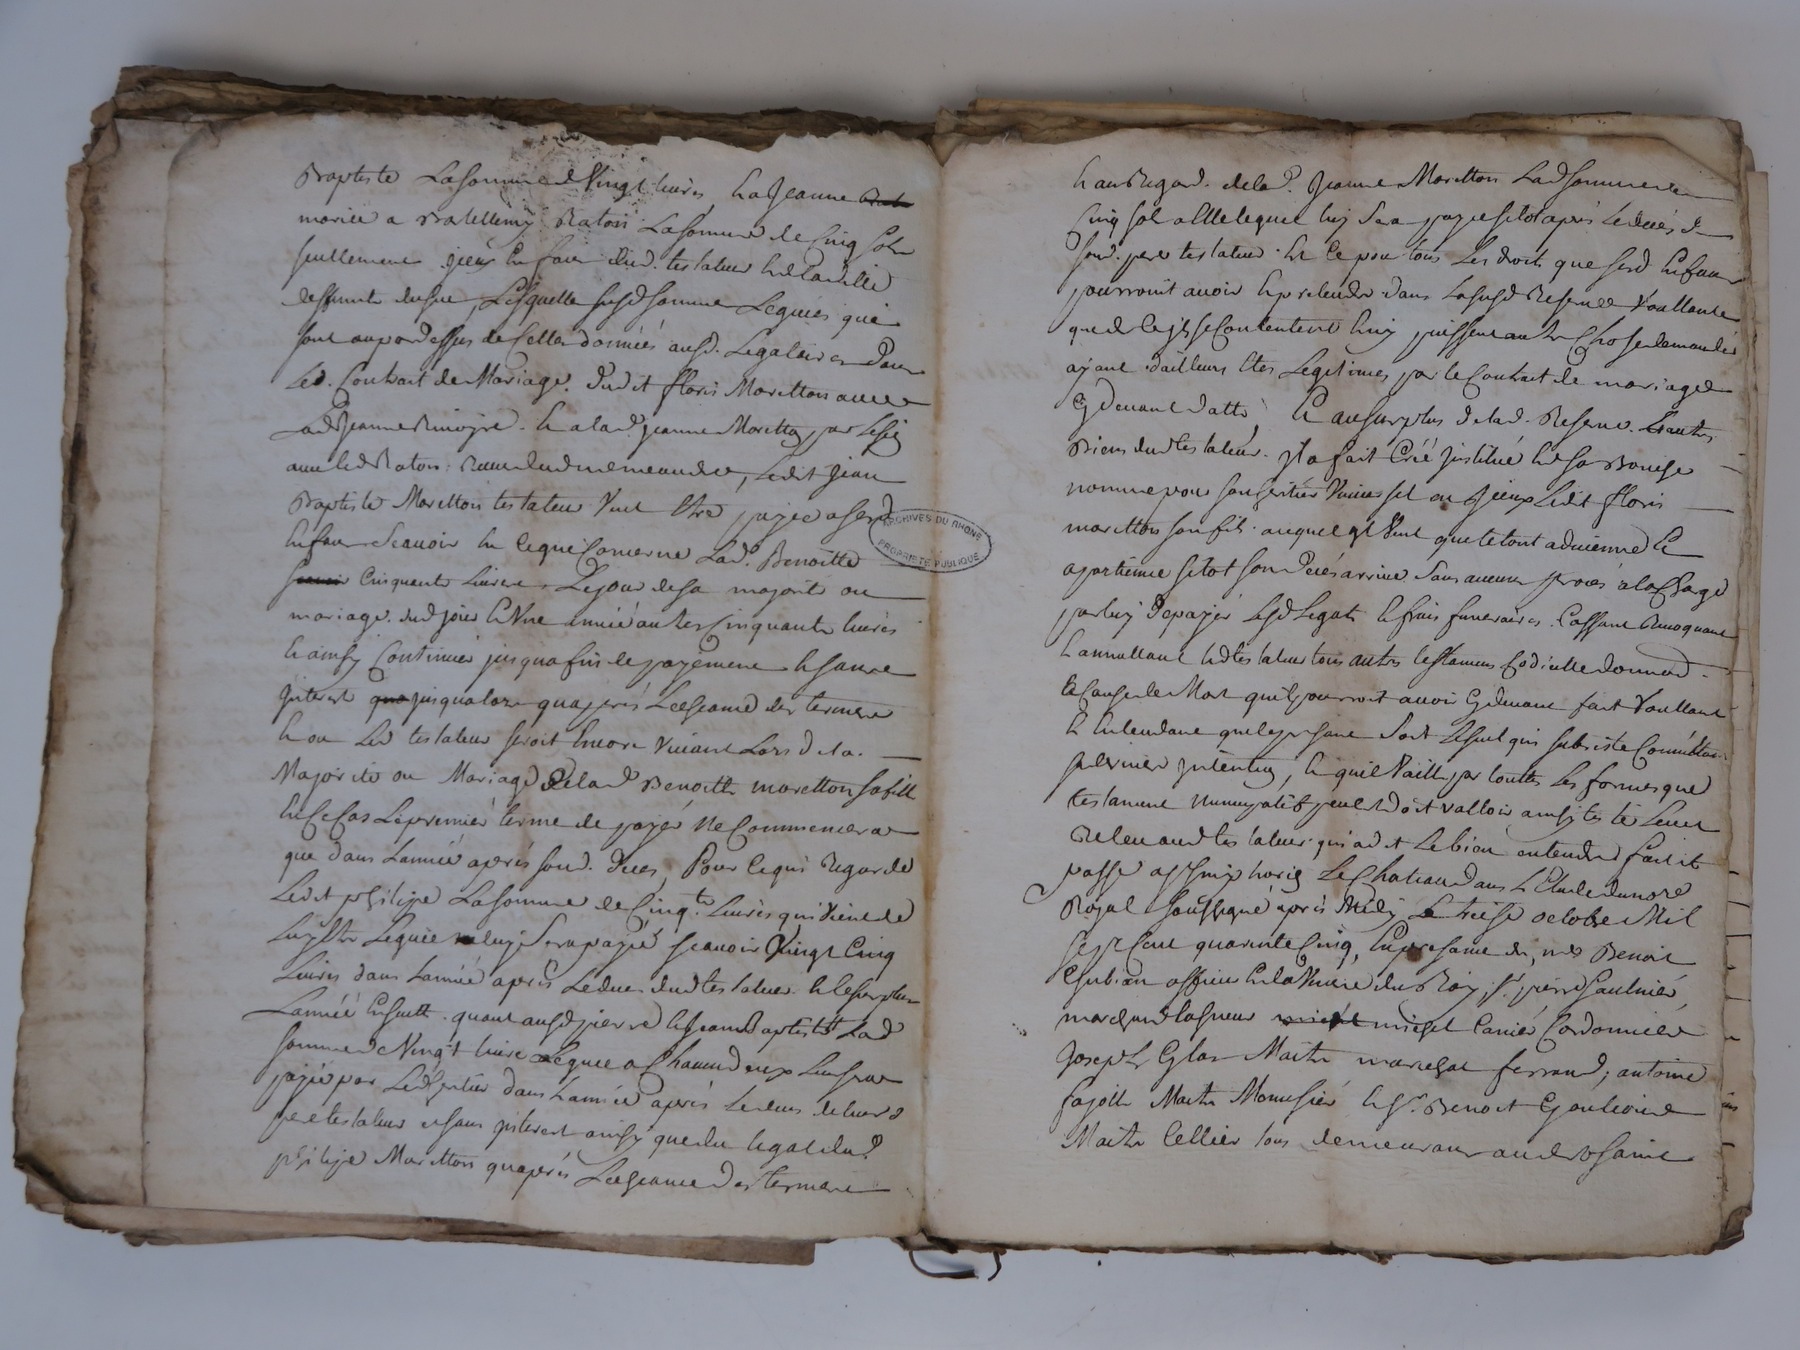 Baptiste La somme de Vingt livres, & a Jeanne
mariée a Barthellemy Raton La somme de Cinq sols
seullement yceux Enfans dud. testateur & de lad.
deffunte Lesquelles susd sommes Leguées qui
sont aupardessus de Celles données ausd. Legataires dans
Led. Contrait de Mariage. dudit floris Moretton avec
Lad Jeanne & a lad. Jeanne Moretton, par le sien
avec led Raton. Ledit Jean
Baptiste Moretton testateur Veut Etre payée a sesd
Enfans Scavoir En ce qui Concerne Lad. Benoitte
Cinquante Livres Le jour de sa majorité ou
mariage. dud jour En Une année autres Cinquante livres
& ainsy Continuer jusqua fin de payement & sans
jnterest qua jusqualors qua prés L'escheance des termes
& ou Led testateur seroit Encore Vivant Lors de la
Majorité ou Mariage de lad Benoitte moretton sa fille
En Ce Cas Le premier terme de payer ne Commencera
que dans L'année aprés sond. deces, Pour ce qui Regarde
Ledit philipe La somme de Cinqte. Livres qui Vient de
Luy Etre Leguée luy Sera payée scavoir Vingt Cinq
Livres dans L'année aprés Le deces dud testateur & le surplus
L'année Ensuitte. quant ausd pierre & Jean Baptiste Lad
somme de Vingt livres Leguée a Chacun deux Leur sera
payée par Led heritier dans L'année aprés Le deces de leurd
pere testateur & sans jnterest ainsy que du legat dud.
philipe Moretton quaprés L'escheance des termes
ARCHIVES DU RHONE
PROPRIETE PUBLIQUE
& au Regard. de lad. Jeanne Moretton Lad somme de
Cinq sols a Elle leguée luy Sera payée sitot aprés Le decés de
sond. pere testateur. Et Ce pour tous Les droits que sesd Enfans
pourroint avoir & pretendre dans La susd Reserve Voullant
que de ce jls se Contentent & ny puissent autre Chose demander
ayant d'ailleurs Etes Legitimes par le Contrait de mariage
Cy devant datté, Et au surplus de lad. Reserve. & autres
Biens dud testateur. jl a fait Créé jnstitué & de sa Bouche
nommé pour son heritier Universel ou yceux Ledit floris
moretton son fils auquel jl Veut que le tout advienne &
apartienne sitot son decés arrivé. Sans aucun procés a la Charge
par luy de payer Lesd Legats & frais funeraires. Cassant Revoquant
& annullant led testateur tous autres testamens Codicille donnaon.
a Cause de Mort quil pourroit avoir Cydevant fait Voullant
& Entendant que le present Soit Le seul qui subsiste Comme Etant sa
derniere jntention, & quil Vaille par touttes Les formes que
testament nuncupatif peut & doit valloir ainsy testé Leu &
Releu aud testateur qui a dit Le bien entendre fait &
passé a St Simphorien Le Chateau dans L'Etude du nore
Royal soussigné aprés Midy Le treise octobre Mil
sept Cent quarante Cinq, En presence de, me Benoit
Gubian officier En la Venerie du Roy, Sr. pierre Gaulnier,
marchand taneur michel Carrier Cordonnier
Joseph Cglas Maitre marechal ferrand, antoine
fayolle Maitre Menuisier & Sr. Benoit Goutioud
Maitre Cellier tous demeurans audit Saint